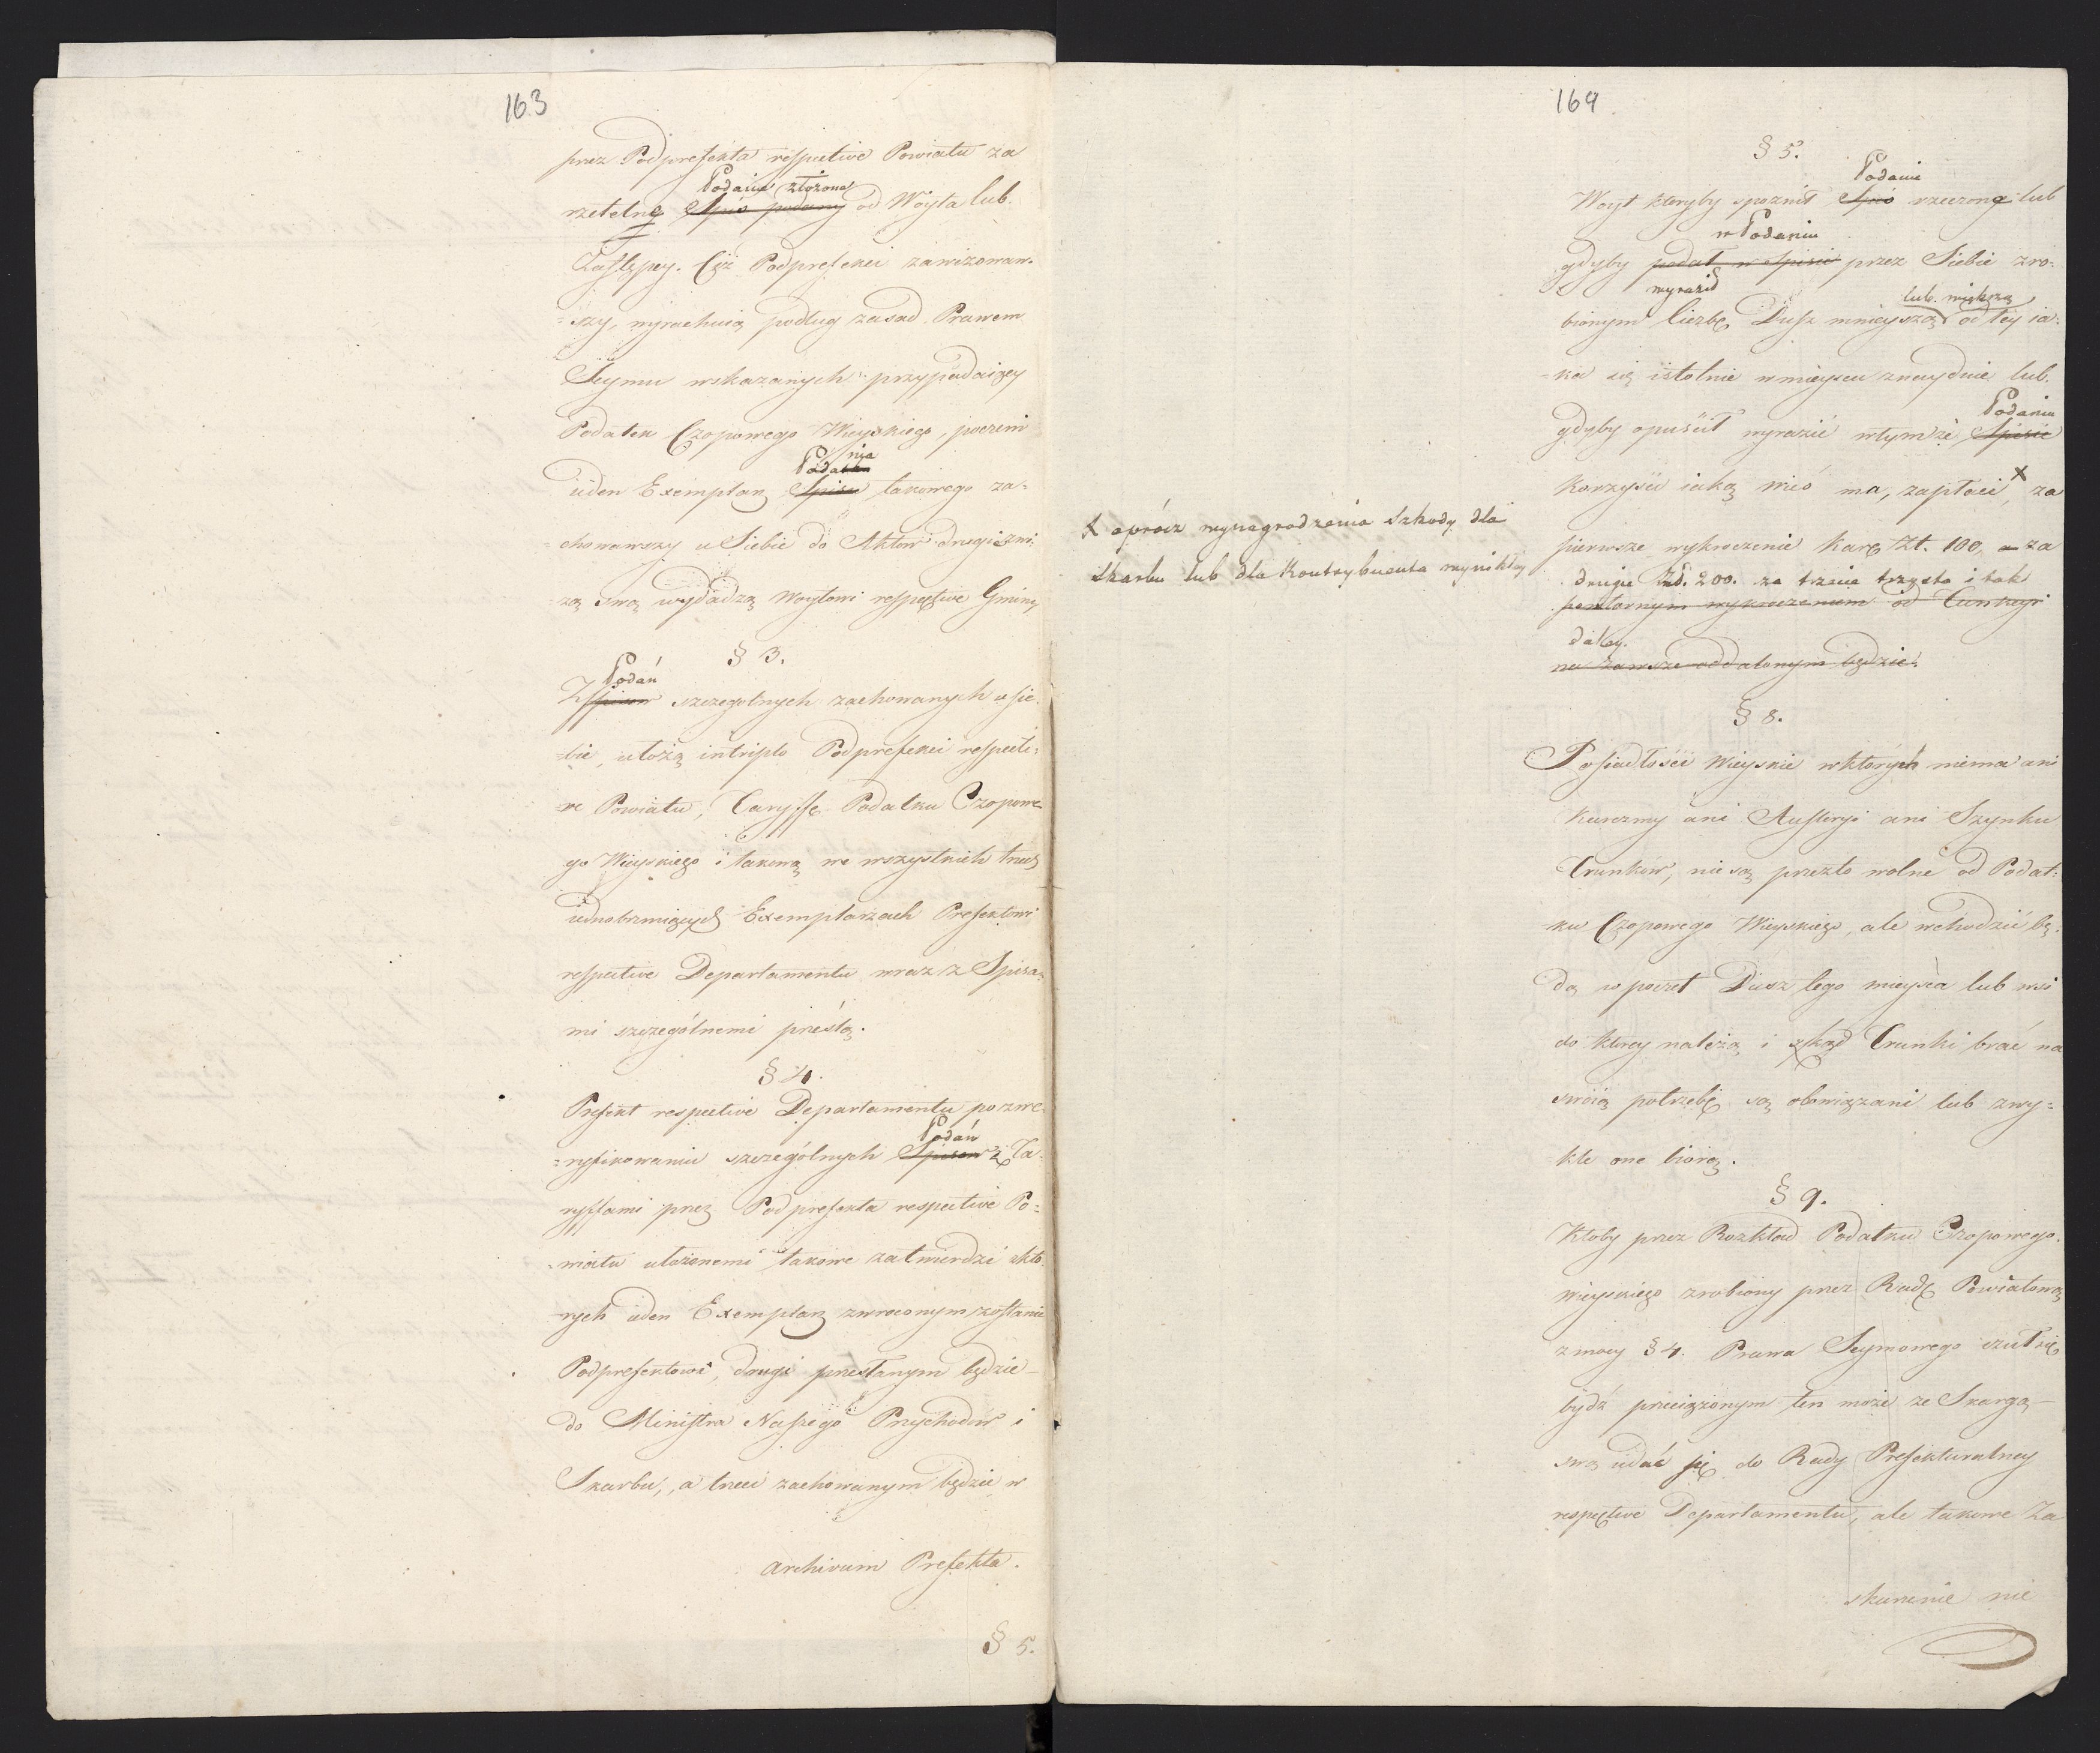 163
przez Podprefekta respective Powiatu za
Podanie złożone
rzetelne Spis podany od Woyta lub
Zastępcy. Ciż Podprefekci zawizowaw-
=szy, wyrachuią podług zasad Prawem
Seymu wskazanych przypadaiący
Podatek Czopowego Wieyskiego, poczem
Podania
ieden Exemplarz Spisu takowego za=
=chowawszy u Siebie do Aktow drugi z wi=
=zą swą wydadzą Woytowi respective Gminy
§ 3.
Podań
Z Spisow szczegolnych zachowanych u sie=
=bie, ułożą in triplo Podprefekci respecti=
=ve Powiatu, Taryffę Podatku Czopowe=
go Wieyskiego i takową we wszystkich trzech
iednobrzmiących Exemplarzach Prefektowi
respective Departamentu wraz z Spisa=
mi szczególnemi prześlą.
§ 4.
Prefekt respective Departamentu po zwe=
Podań
=ryfikowaniu szczególnych Spisow z Ta=
ryffami przez Podprefekta respective Po=
=wiatu ułożonemi takowe zatwierdzi z kto=
=rych ieden Exemplarz zwroconym zostanie
Podprefektowi, drugi przesłanym będzie
do Ministra Naszego Przychodów i
Skarbu, a trzeci zachowanym będzie w
archivum Prefekta.
§ 5.
164
§ 5.
Podanie
Woyt ktoryby spoznił Spis rzeczone lub
w Podaniu
gdyby podał w Spisie przez Siebie zro=
wyraził lub większą
bionym liczbę Dusz mnieyszą od tey ia=
=ka się istotnie w mieyscu znayduie lub
Podaniu
gdyby opuścił wyrazić w tymże Spisie
Korzyści iaką mieć ma, zapłaci X za
X oprócz wynagrodzenia szkody dla
Skarbu lub dla Kontrybuenta wynikłey
pierwsze wykroczenie karę Zł. 100, a za
drugie Zł. 200. za trzecie trzysta i tak
powtornym wykroczeniem od Funkcyi
daley.
na zawsze oddalonym będzie.
§ 8.
Posiadłości Wieyskie w których niema ani
Karczmy ani Austeryi ani Szynku
Trunków, nie są przezto wolne od Podat=
=ku Czopowego Wieyskiego, ale wchodzić bę=
dą w poczet Dusz tego mieysca lub wsi
do ktorey należą i zkąd Trunki brać na
swoią potrzebę są obowiązani lub zwy=
kle one biorą.
§ 9.
Ktoby przez Rozkład Podatku Czopowego
wieyskiego zrobiony przez Radę Powiatową
z mocy § 4. Prawa Seymowego czuł się
bydź przeciążonym ten może ze Skargą
swą udać się do Rady Prefekturalney
respective Departamentu, ale takowe Za
skarzenie nie